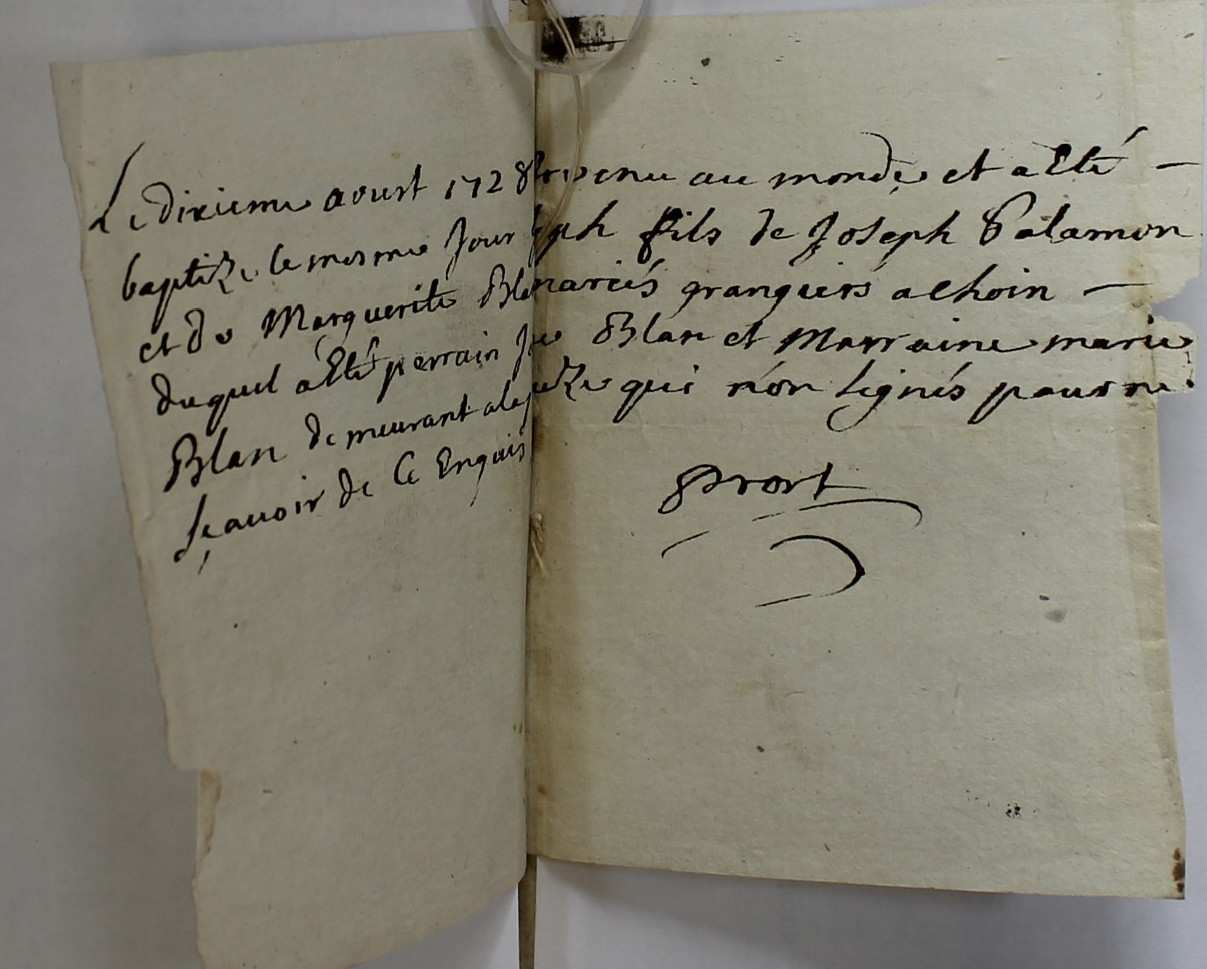 Le dixieme aoust 1728 venu au monde et a Eté
baptizé le mesme Jour fils de Joseph Palamon
et de Marguerite mariés grangiers a choin
duquel a Eté perrain Blan et Marraine marie
Blan demeurant qui n'on signés pour ne
sçavoir de ce Enquis